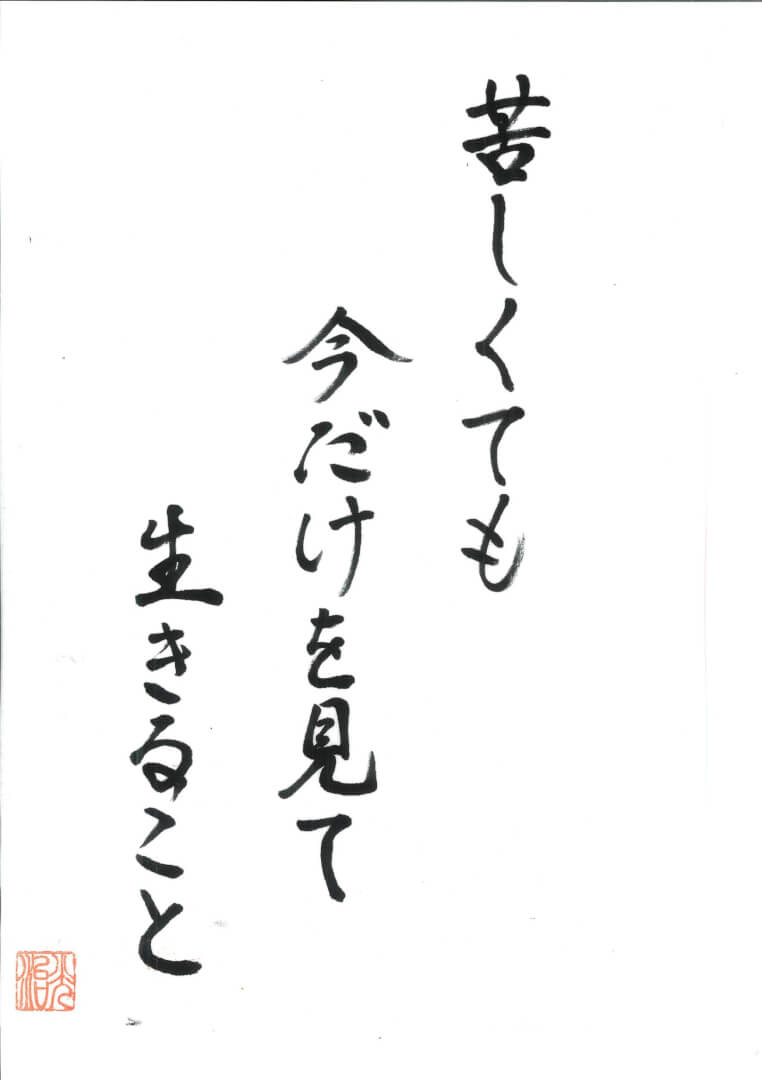 苦しくても
今だけを見て
生きること